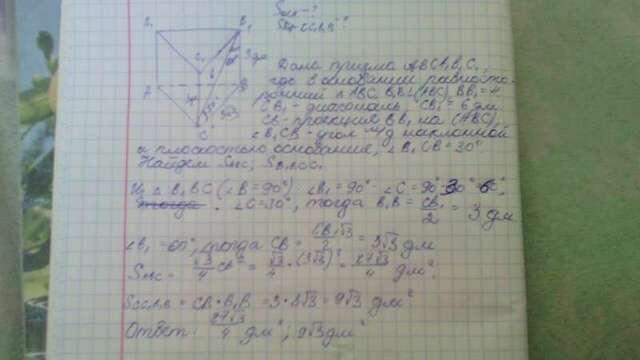 Sосн - ?
A₁
B₁
C₁
3 дм
6
A
B
C
30°
Дано призма ABCA₁B₁C₁,
где в основании равносто-
ронний △ABC, B₁B⊥(ABC), BB₁ = H
CB₁ - диагональ, CB₁ = 6 дм
CB - проекция на (ABC),
∠B₁CB - угол м/д наклонной
и плоскостью основания, ∠B₁CB = 30°
Найдем Sосн, 
Из △B₁BC (∠B = 90°) ∠B₁ = 90° - ∠C = 90° - 30° = 60°,
∠C = 30°, тогда B₁B = CB₁/2 = 3 дм
∠B₁ = 60°, тогда CB = CB₁√3/2 = 3√3 дм
Sосн = √3/4 CB² = √3/4 · (3√3)² = 27√3/4 дм²
= CB · B₁B = 3 · 3√3 = 9√3 дм²
Ответ: 27√3/4 дм²; 9√3 дм²